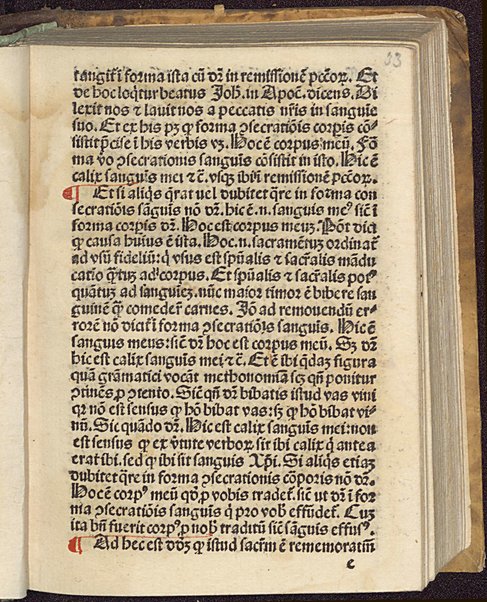 33
tangit̃ ĩ forma ista cũ dr̃ in remissionẽ pctõꝝ. Et
de hoc loqͥtur beatus Joh̃. in Apoc̃. dicens. Di
lexit nos ⁊ lauit nos a peccatis nr̃is in sanguĩe
suo. Et ex his pꝫ ꝙ forma ꝯsecratiõis corꝑis cõ⸗
sistit p̃cise ĩ his verbis vꝫ. Hoc ẽ corpus meũ. Foꝛ
ma v̊o ꝯsecrationis sanguĩs cõsistit in isto. Hic ẽ
calix sanguĩs mei ⁊ c̃. vsqꝫ ibi ĩ remissionẽ pctõꝝ.
¶ Et si aliqͥs q̃rat uel dubitet q̃re in forma con
secratiõis sãguĩs nõ dr̃. hic ẽ .n. sanguis meꝰ sic̃ ĩ
forma corꝑis dr̃. Hoc est corpus meuꝫ. Põt dici
ꝙ causa huius ẽ ista. Hoc .n. sacramẽtuꝫ ordinat̃
ad vsũ fideliũ: q̃ vsus est sp̃ualis ⁊ sacr̃alis mãdu
catio q̃ꝫtuꝫ ad corpus. Et sp̃ualis ⁊ sacr̃alis pot̃
quãtuꝫ ad sanguineꝫ. nũc maior timor ẽ bibere san
guinẽ ꝙ̃ comeder̃ carnes. Jõ ad remouendũ er⸗
rorẽ nõ dicit̃ ĩ forma ꝯsecratiõis sanguĩs. Hic ẽ
sanguis meus: sic̃ dr̃ hoc est corpus meũ. Sꝫ dr̃
hic est calix sanguĩs mei ⁊ c̃. Et ẽ ibi q̃daꝫ figura
quã grãmatici vocãt methonomiã scꝫ qñ ponitur
ꝯtinẽs ꝓ ꝯtento. Sic̃ qñ dr̃ bibatis istud vas vini
qꝛ nõ est sensus ꝙ hõ bibat vas: sꝫ ꝙ hõ bibat vi⸗
nũ. Sic quãdo dr̃. Hic est calix sanguĩs mei: non
est sensus ꝙ ex v̾tute verboꝝ sit ibi calix q̃ ante a
erat ibi. sed ꝙ ibi sit sanguis Xp̃i. Si aliqͥs etiaꝫ
dubitet q̃re in forma ꝯsecrationis cõꝑoris nõ dr̃.
Hoc ẽ corpꝰ meũ qð ꝓ vobis tradet̃. sic̃ ut dr̃ ĩ for
ma ꝯsecratiõis sanguĩs q̃ pro vob̃ effũdet̃. Cuꝫ
ita bñ fuerit corpꝰ ꝓ uob̃ traditũ sic̃ sãguis effusꝰ.
¶ Ad hec est dõꝫ ꝙ istud sacr̃m ẽ rememoratiũ
e